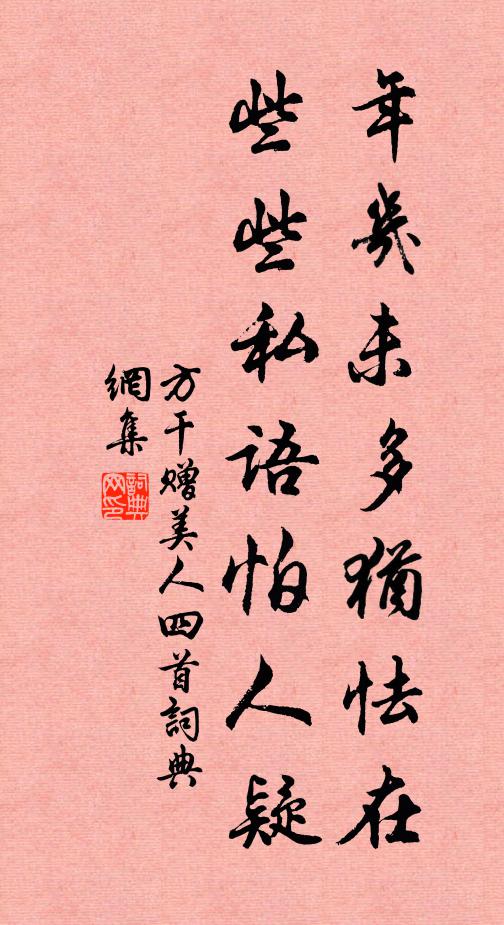 年幾未多猶怯在
些些私語怕人疑
方干贈美人四首詞典
網集
詞典網印